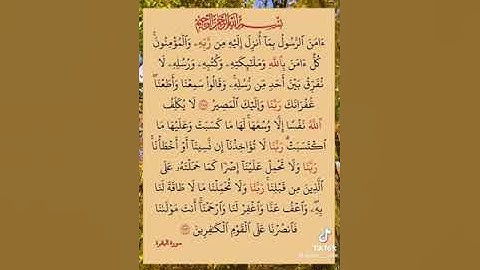 بِسْمِ ٱللَّهِ ٱلرَّحْمَٰنِ ٱلرَّحِيمِ
ءَامَنَ ٱلرَّسُولُ بِمَآ أُنزِلَ إِلَيْهِ مِن رَّبِّهِۦ وَٱلْمُؤْمِنُونَۚ
كُلٌّ ءَامَنَ بِٱللَّهِ وَمَلَٰٓئِكَتِهِۦ وَكُتُبِهِۦ وَرُسُلِهِۦ لَا
نُفَرِّقُ بَيْنَ أَحَدٍ مِّن رُّسُلِهِۦۚ وَقَالُوا۟ سَمِعْنَا وَأَطَعْنَاۖ
غُفْرَانَكَ رَبَّنَا وَإِلَيْكَ ٱلْمَصِيرُ ٢٨٥ لَا يُكَلِّفُ
ٱللَّهُ نَفْسًا إِلَّا وُسْعَهَاۚ لَهَا مَا كَسَبَتْ وَعَلَيْهَا مَا
ٱكْتَسَبَتْۗ رَبَّنَا لَا تُؤَاخِذْنَآ إِن نَّسِينَآ أَوْ أَخْطَأْنَاۚ
رَبَّنَا وَلَا تَحْمِلْ عَلَيْنَآ إِصْرًا كَمَا حَمَلْتَهُۥ عَلَى
ٱلَّذِينَ مِن قَبْلِنَاۚ رَبَّنَا وَلَا تُحَمِّلْنَا مَا لَا طَاقَةَ لَنَا
بِهِۦۖ وَٱعْفُ عَنَّا وَٱغْفِرْ لَنَا وَٱرْحَمْنَآۚ أَنتَ مَوْلَىٰنَا
فَٱنصُرْنَا عَلَى ٱلْقَوْمِ ٱلْكَٰفِرِينَ ٢٨٦
سورة البقرة
TikTok